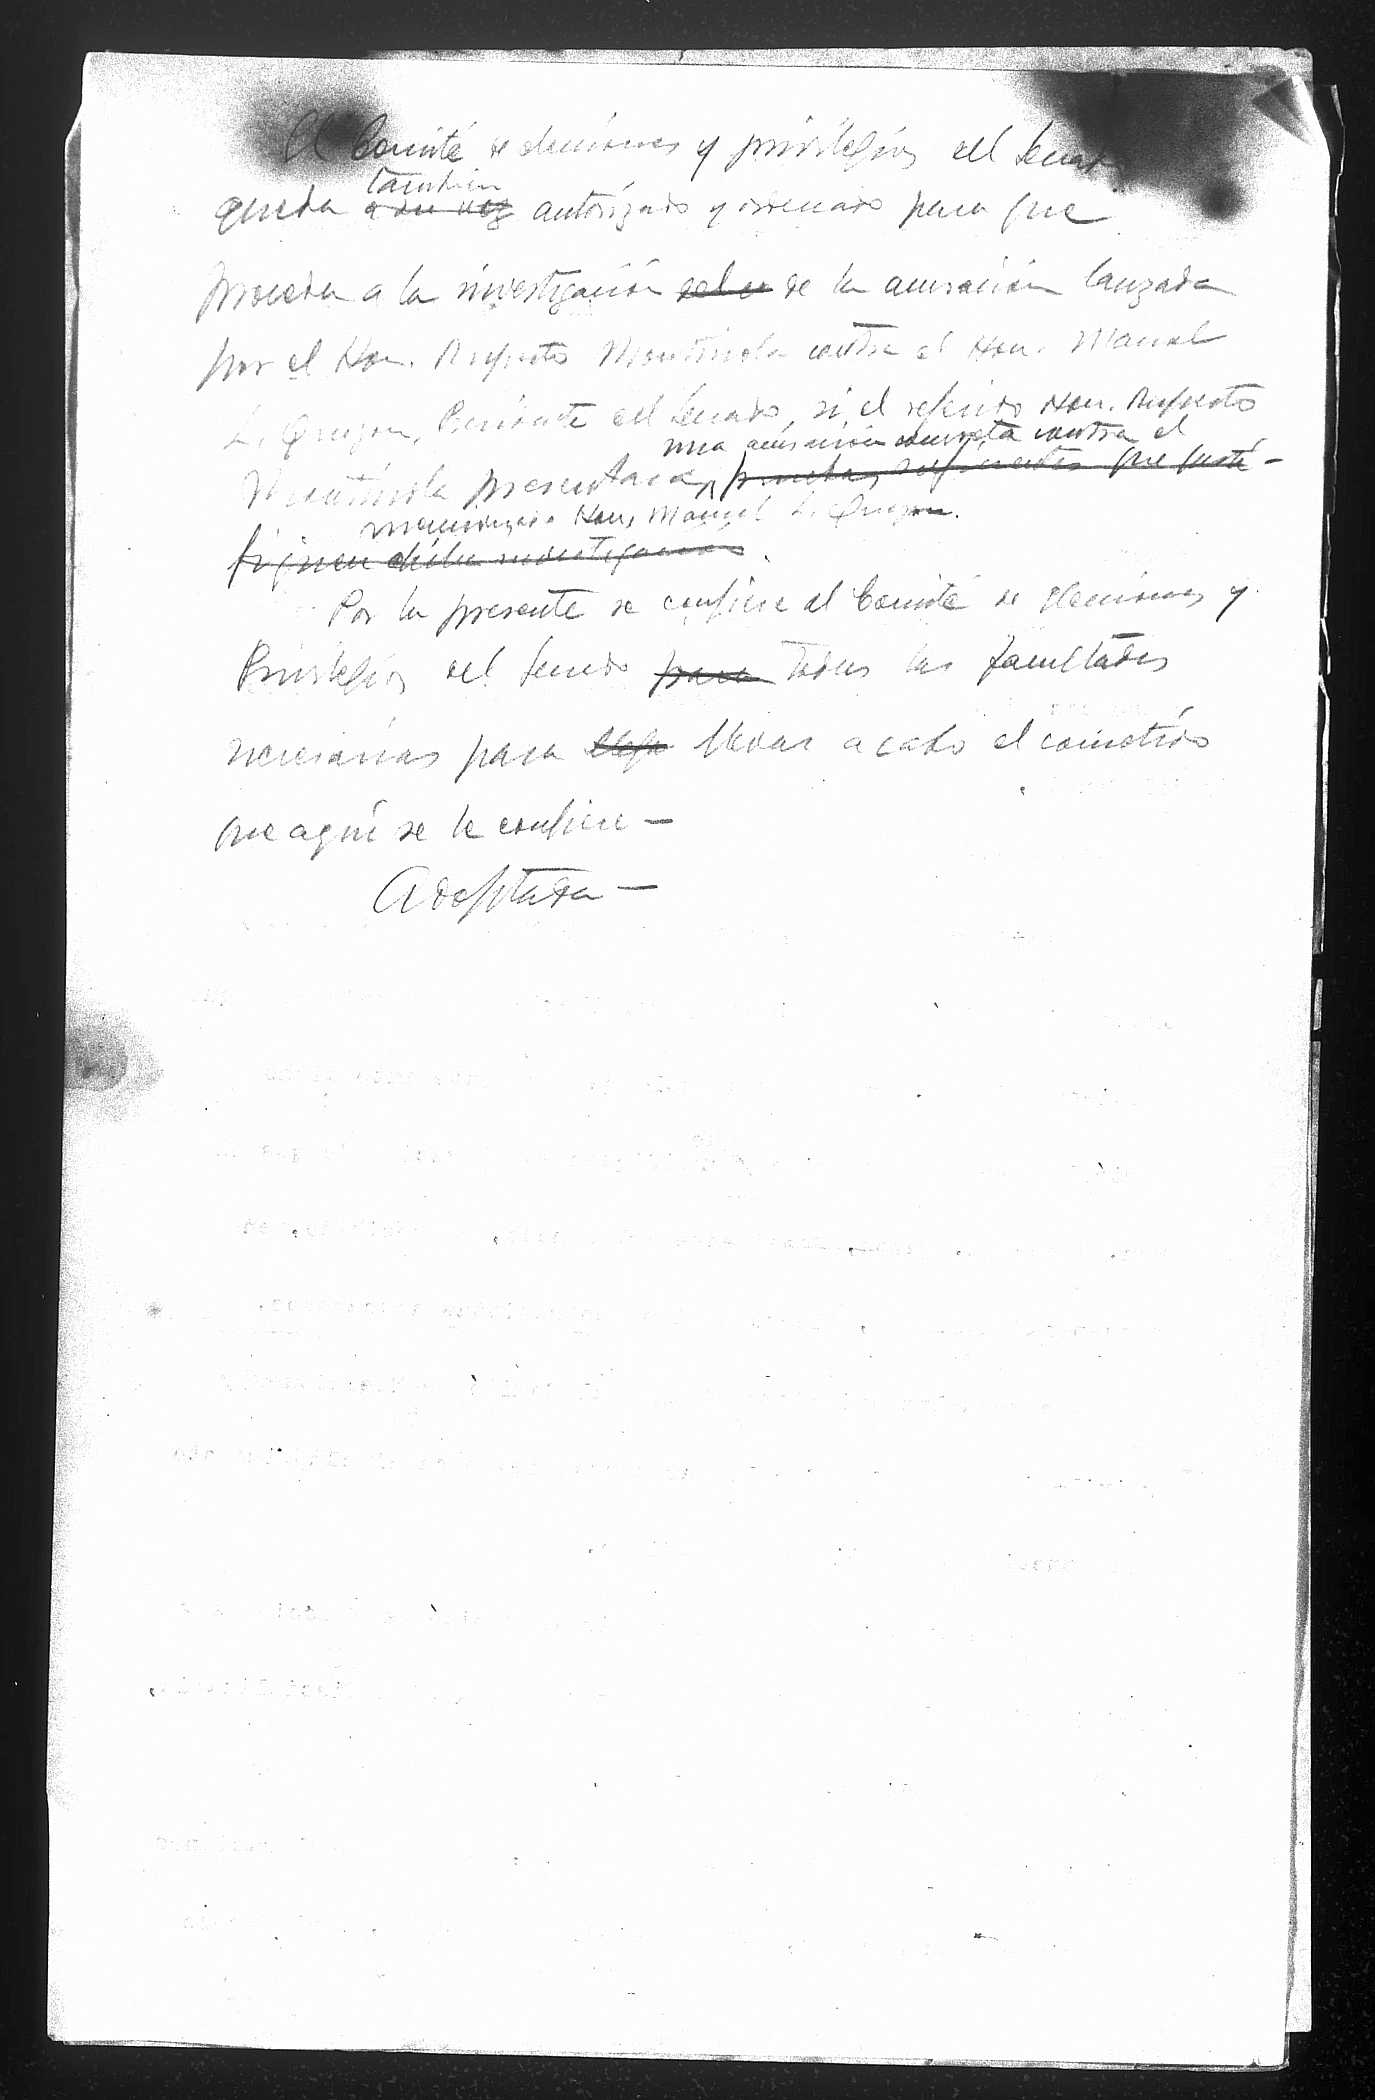 El Comité de elecciones y privilegios del Senado
también
queda a su vez autorizado y ordenado para que
proceda a la investigación de la acusación lanzada
por el Hon. Ruperto Montinola contra el Hon. Manuel
L. Quezon, Presidente del Senado, si el referido Hon. Ruperto
una acusación concreta contra el
Montinola presentara pruebas suficientes que justi-
mencionado Hon. Manuel L. Quezon.
fiquen dicha investigación.
Por la presente se confiere al Comité de Elecciones y
Privilegios del Senado para todas las facultades
necesarias para llevar a cabo el cometido
que aquí se le confiere —
Adoptada —